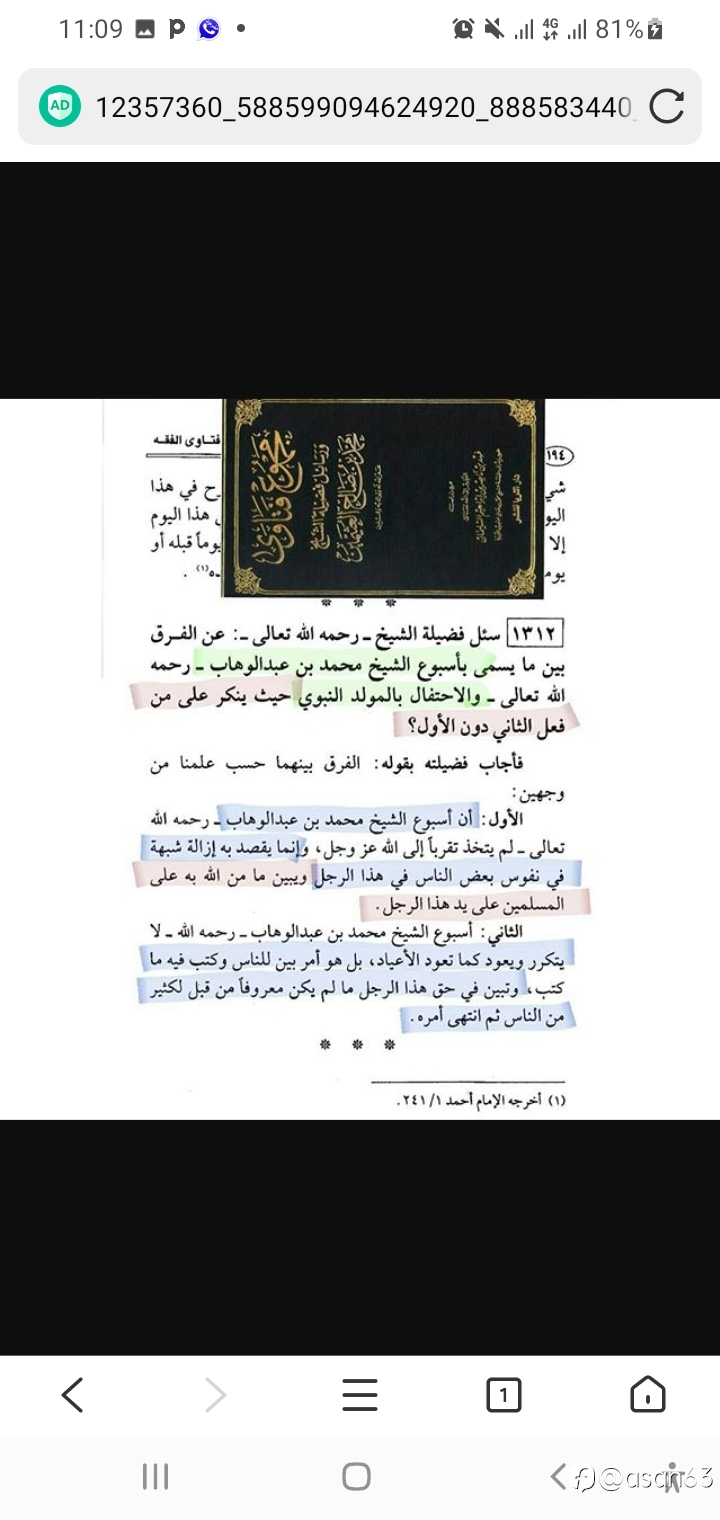 11:09
4G
81%
AD
12357360_588599094624920_888583440_
مجموع فتاوى
ورسائل فضيلة الشيخ
محمد بن صالح العثيمين
١٩٤
فتاوى الفقه
شي
رح في هذا
اليو
هذا اليوم
إلا
يوماً قبله أو
يوم
(١).
* * *
١٣١٢ سئل فضيلة الشيخ ـ رحمه الله تعالى ـ: عن الفرق
بين ما يسمى بأسبوع الشيخ محمد بن عبدالوهاب ـ رحمه
الله تعالى ـ والاحتفال بالمولد النبوي حيث ينكر على من
فعل الثاني دون الأول؟
فأجاب فضيلته بقوله: الفرق بينهما حسب علمنا من
وجهين:
الأول: أن أسبوع الشيخ محمد بن عبدالوهاب ـ رحمه الله
تعالى ـ لم يتخذ تقرباً إلى الله عز وجل، وإنما يقصد به إزالة شبهة
في نفوس بعض الناس في هذا الرجل ويبين ما من الله به على
المسلمين على يد هذا الرجل.
الثاني: أسبوع الشيخ محمد بن عبدالوهاب ـ رحمه الله ـ لا
يتكرر ويعود كما تعود الأعياد، بل هو أمر بين للناس وكتب فيه ما
كتب، وتبين في حق هذا الرجل ما لم يكن معروفاً من قبل لكثير
من الناس ثم انتهى أمره.
* * *
(١) أخرجه الإمام أحمد ٢٤١/١.
1
@asqn63